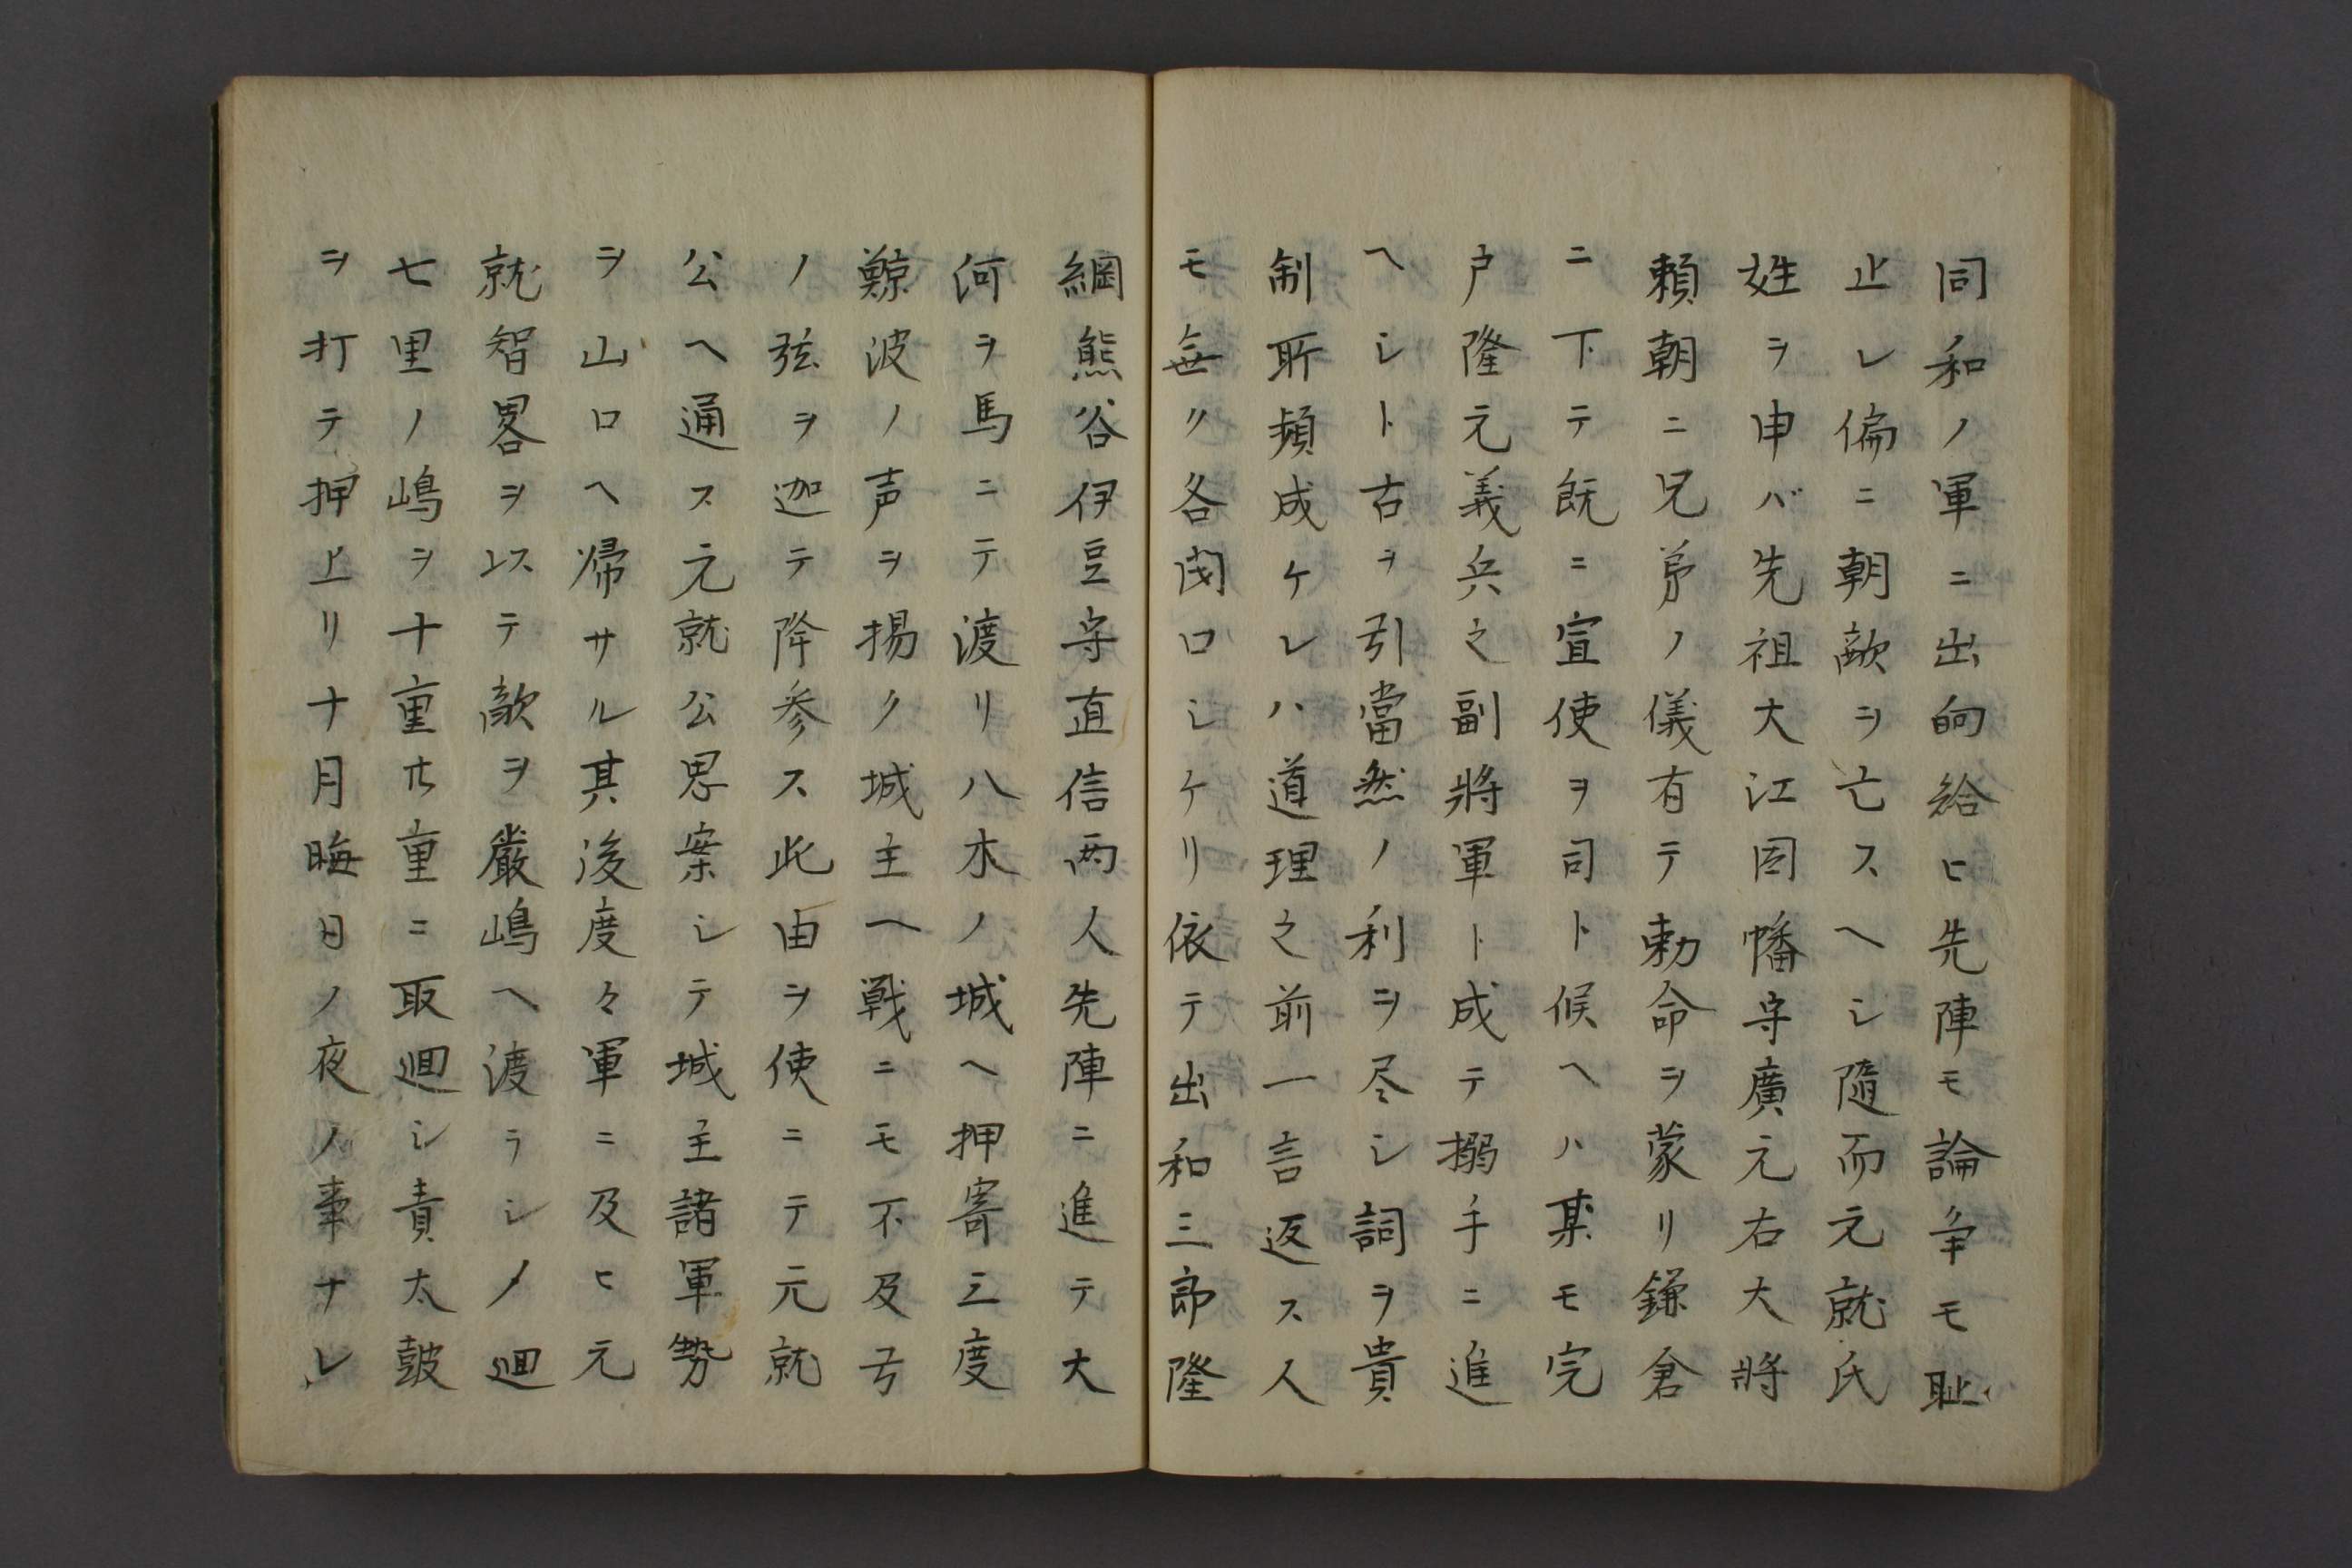 同和ノ軍ニ出向給ヒ先陣モ論争モ恥
止レ偏ニ朝敵ヲ亡スヘシ随而元就氏
姓ヲ申バ先祖大江因幡守廣元右大將
頼朝ニ兄弟ノ儀有テ勅命ヲ蒙リ鎌倉
ニ下テ既ニ宣使ヲ司ト候ヘハ某モ完
戸隆元義兵之副將軍ト成テ搦手ニ進
ヘシト古ヲ引當然ノ利ヲ尽シ詞ヲ貴
制所頻成ケレハ道理之前一言返ス人
モ無リ各閉口シケリ依テ出和三郎隆
綱熊谷伊豆守直信両人先陣ニ進テ大
河ヲ馬ニテ渡リ八木ノ城ヘ押寄三度
鯨波ノ声ヲ揚ク城主ヘ戦ニモ不及弓
ノ弦ヲ迦テ降参ス此由ヲ使ニテ元就
公ヘ通ス元就公思案シテ城主諸軍勢
ヲ山口ヘ帰サル其後度々軍ニ及ヒ元
就智畧ヲ以テ敵ヲ嚴嶋ヘ渡ラシメ廻
七里ノ嶋ヲ十重廿重ニ取廻シ責太鼓
ヲ打テ押上リ十月晦日ノ夜ノ事ナレ